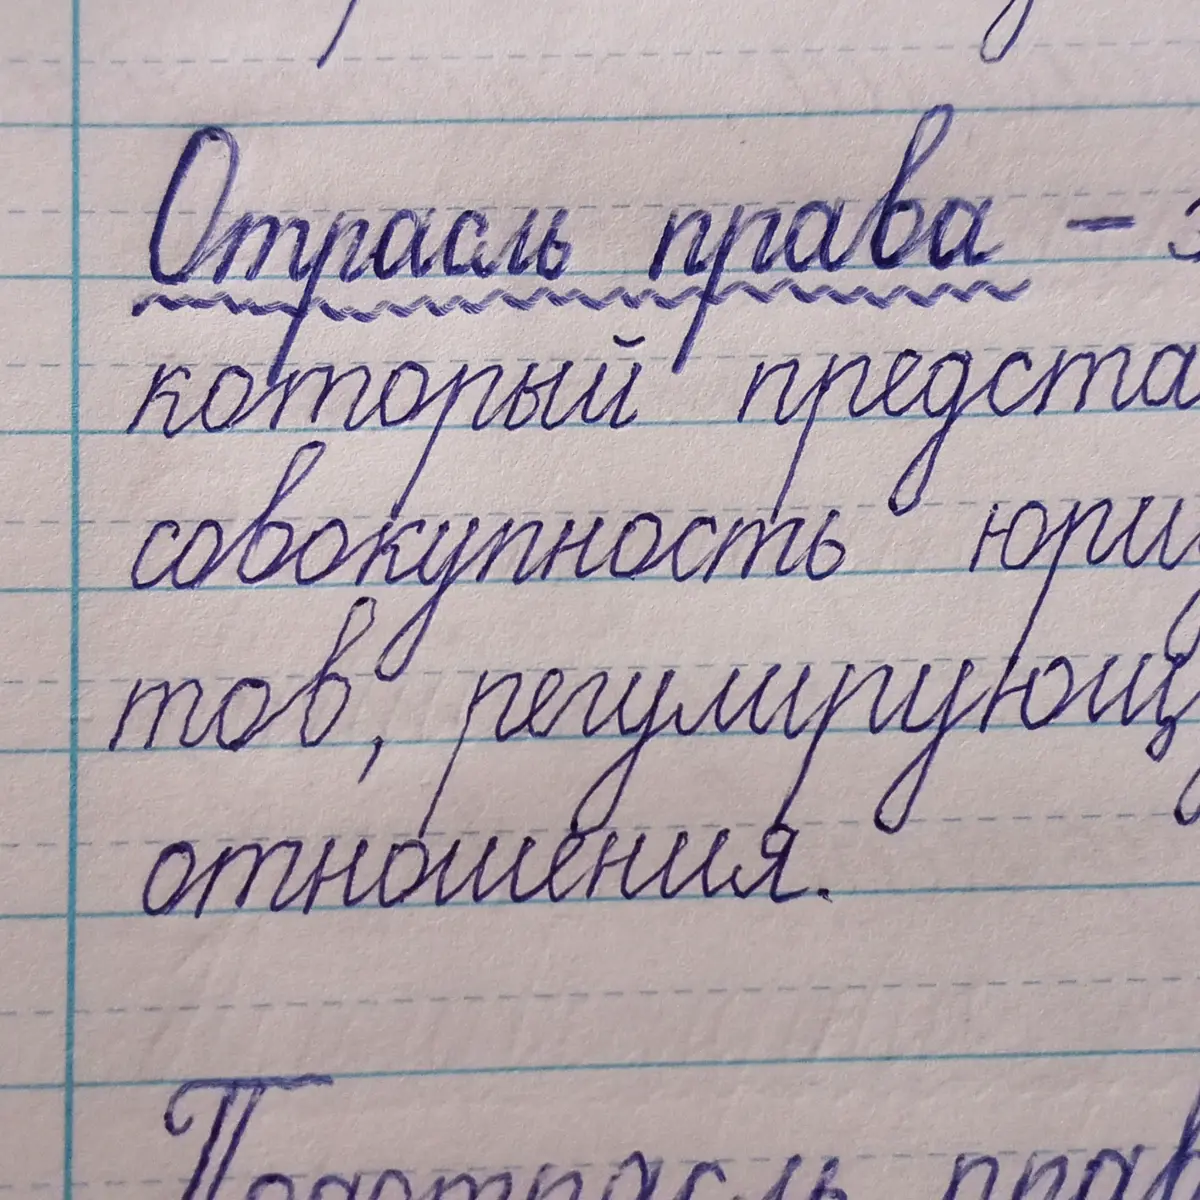 Отрасль права - э
который предста
совокупность юри
тов, регулирующ
отношения.
Подотрасль прав